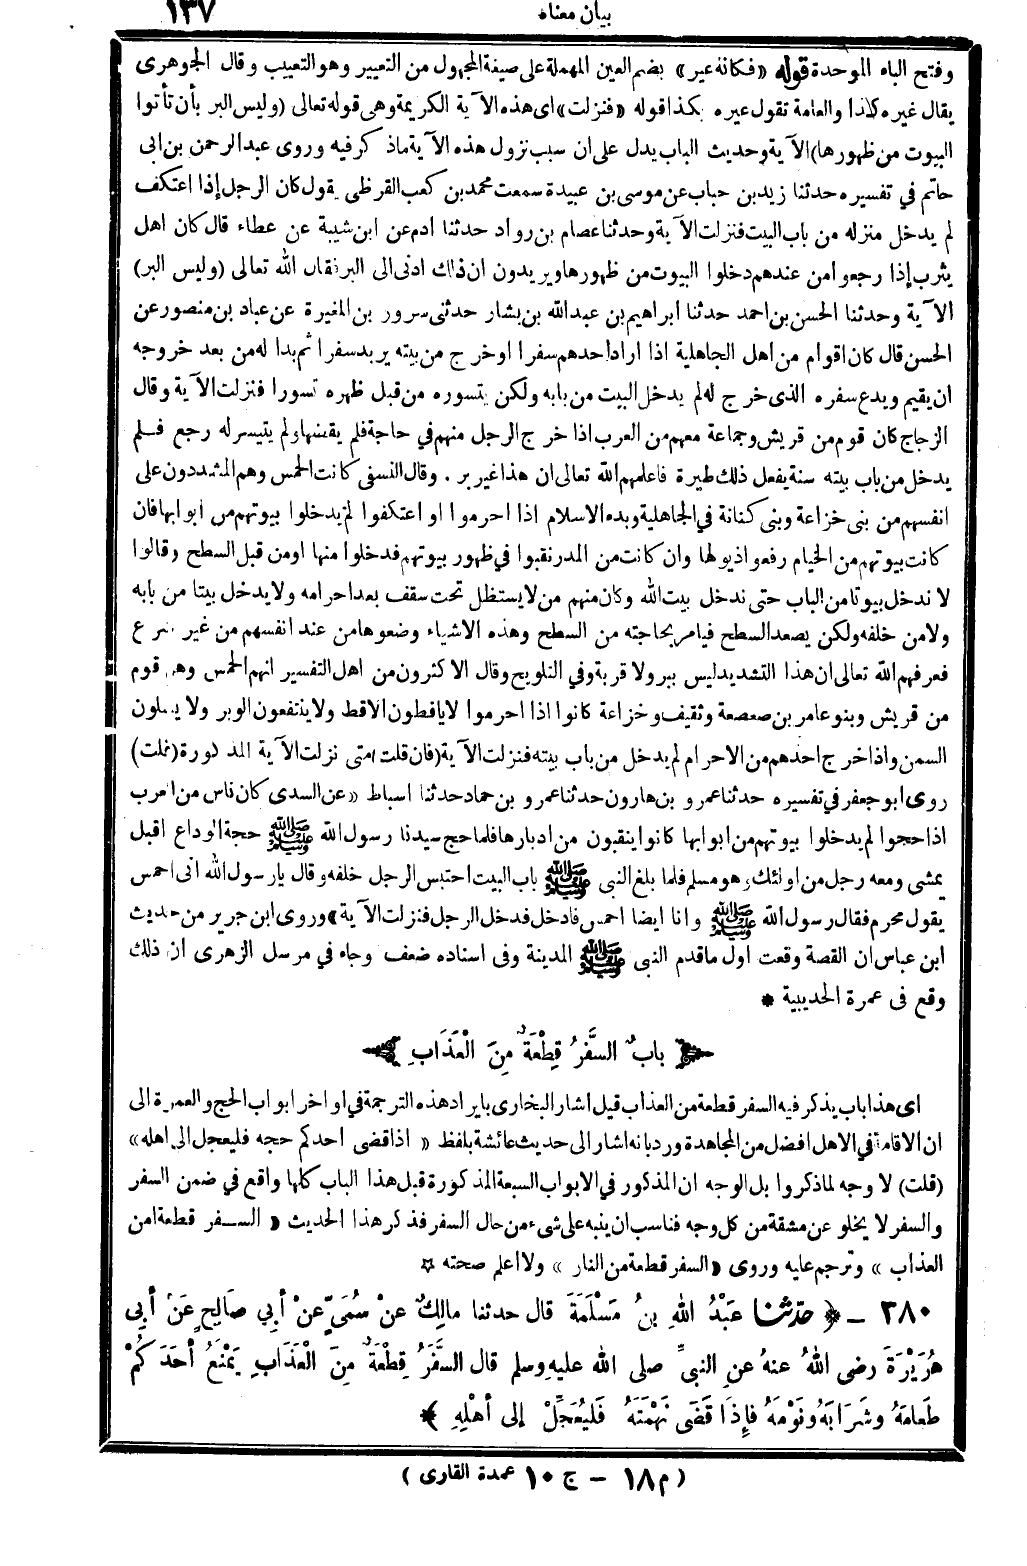 بيان معناه ١٣٧
وفتح الباء الموحدة قوله «فكانه عير» بضم العين المهملة على صيغة المجهول من التعيير وهو التعييب وقال الجوهرى
يقال غيره كذا والعامة تقول عيره بكذا قوله «فنزلت» اى هذه الآية الكريمة وهى قوله تعالى (وليس البر بأن تأتوا
البيوت من ظهورها) الآية وحديث الباب يدل على ان سبب نزول هذه الآية ماذكر فيه وروى عبد الرحمن بن ابى
حاتم في تفسيره حدثنا زيد بن حباب عن موسى بن عبيدة سمعت محمد بن كعب القرظى يقول كان الرجل إذا اعتكف
لم يدخل منزله من باب البيت فنزلت الآية وحدثنا عصام بن رواد حدثنا ادم عن ابن شيبة عن عطاء قال كان اهل
يثرب إذا رجعوا من عندهم دخلوا البيوت من ظهورها ويريدون ان ذلك ادنى الى البر نقال الله تعالى (وليس البر)
الآية وحدثنا الحسن بن احمد حدثنا ابراهيم بن عبد الله بن بشار حدثنى سرور بن المغيرة عن عباد بن منصور عن
الحسن قال كان اقوام من اهل الجاهلية اذا اراد احدهم سفرا اوخرج من بيته يريد سفرا ثم بدا له من بعد خروجه
ان يقيم ويدع سفره الذى خرج له لم يدخل البيت من بابه ولكن يتسوره من قبل ظهره تسورا فنزلت الآية وقال
الزجاج كان قوم من قريش وجماعة معهم من العرب اذا خرج الرجل منهم في حاجة فلم يقضها ولم يتيسر له رجع فلم
يدخل من باب بيته سنة يفعل ذلك طيرة فاعلمهم الله تعالى ان هذا غير بر . وقال النسفى كانت الحمس وهم المشددون على
انفسهم من بنى خزاعة وبنى كنانة في الجاهلية وبدء الاسلام اذا احرموا او اعتكفوا لم يدخلوا بيوتهم من ابوابها فان
كانت بيوتهم من الخيام رفعوا ذيولها وان كانت من المدر نقبوا في ظهور بيوتهم فدخلوا منها او من قبل السطح وقالوا
لا ندخل بيوتا من الباب حتى ندخل بيت الله وكان منهم من لا يستظل تحت سقف بعد احرامه ولا يدخل بيتا من بابه
ولا من خلفه ولكن يصعد السطح فيامر بحاجته من السطح وهذه الاشياء وضعوها من عند انفسهم من غير شرع
فعرفهم الله تعالى ان هذا التشديد ليس ببر ولا قربة وفي التلويح وقال الاكثرون من اهل التفسير انهم الحمس وهم قوم
من قريش وبنو عامر بن صعصعة وثقيف وخزاعة كانوا اذا احرموا لا يافطون الاقط ولا ينتفعون الوبر ولا يسلون
السمن واذا خرج احدهم من الاحرام لم يدخل من باب بيته فنزلت الآية (فان قلت) متى نزلت الآية المذكورة (قلت)
روى ابو جعفر في تفسيره حدثنا عمرو بن هارون حدثنا عمرو بن حماد حدثنا اسباط «عن السدى كان ناس من العرب
اذا حجوا لم يدخلوا بيوتهم من ابوابها كانوا ينقبون من ادبارها فلما حج سيدنا رسول الله ﷺ حجة الوداع اقبل
يمشى ومعه رجل من اولئك وهو مسلم فلما بلغ النبى ﷺ باب البيت احتبس الرجل خلفه وقال يارسول الله انى احمس
يقول محرم فقال رسول الله ﷺ وانا ايضا احمس فادخل فدخل الرجل فنزلت الآية» وروى ابن جرير من حديث
ابن عباس ان القصة وقعت اول ماقدم النبى ﷺ المدينة وفى اسناده ضعف وجاء في مرسل الزهرى ان ذلك
وقع فى عمرة الحديبية *
باب السَّفَرُ قِطْعَةٌ مِنَ الْعَذَابِ
اى هذا باب يذكر فيه السفر قطعة من العذاب قيل اشار البخارى بايراد هذه الترجمة في اواخر ابواب الحج والعمرة الى
ان الاقامة في الاهل افضل من المجاهدة ورد بانه اشار الى حديث عائشة بلفظ «اذا قضى احدكم حجه فليعجل الى اهله»
(قلت) لا وجه لما ذكروا بل الوجه ان المذكور في الابواب السبعة المذكورة قبل هذا الباب كلها واقع في ضمن السفر
والسفر لا يخلو عن مشقة من كل وجه فناسب ان ينبه على شىء من حال السفر فذكر هذا الحديث «السفر قطعة من
العذاب» وترجم عليه وروى «السفر قطعة من النار» ولا اعلم صحته ✡
٢٨٠ ـ ﴿ حدّثنا عَبْدُ اللهِ بنُ مَسْلَمَةَ قال حدثنا مالِكٌ عنْ سُمَيٍّ عنْ أبِي صَالِحٍ عَنْ أبِي
هُرَيْرَةَ رضى اللهُ عنهُ عنِ النبىِّ صلى الله عليهِ وسلم قال السَّفَرُ قِطْعَةٌ مِنَ الْعَذَابِ يَمْنَعُ أحَدَكُمْ
طَعَامَهُ وشَرَابَهُ ونَوْمَهُ فإِذَا قَضَى نَهْمَتَهُ فَليُعَجِّلْ إلى أهْلِهِ ﴾
(م ١٨ ـ ج ١٠ عمدة القارى)